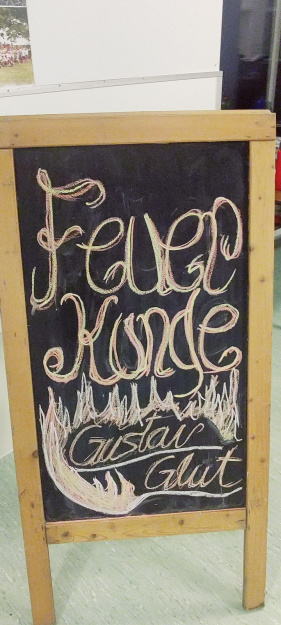 Feuer
Kunge
Gustav
Glut